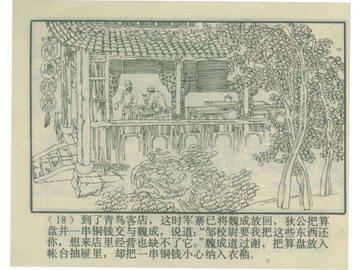 (18) 到了青鸟客店，这时军寨已将魏成放回，狄公把算
盘并一串铜钱交与魏成，说道，“邹校尉要我把这些东西还
你，想来店里经营也缺不了它。”魏成道过谢，把算盘放入
帐台抽屉里，却把一串铜钱小心纳入衣袖。